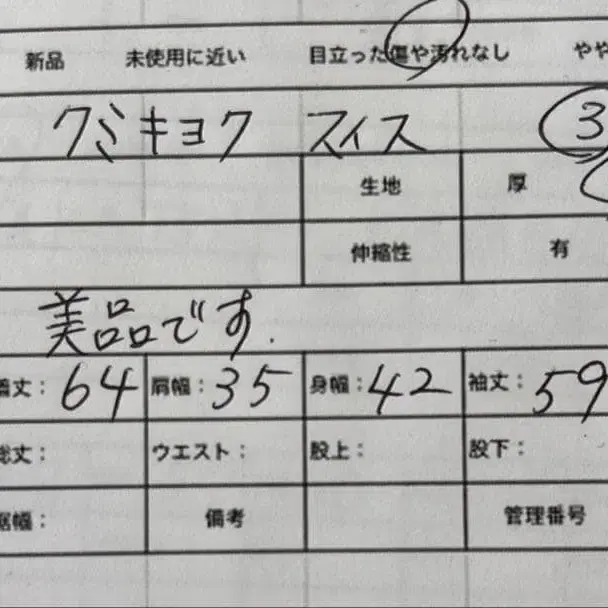 新品 未使用に近い 目立った傷や汚れなし やや
クミキョク スイス 3
生地 厚
伸縮性 有
美品です.
着丈: 64 肩幅: 35 身幅: 42 袖丈: 59
総丈: ウエスト: 股上: 股下:
裾幅: 備考 管理番号